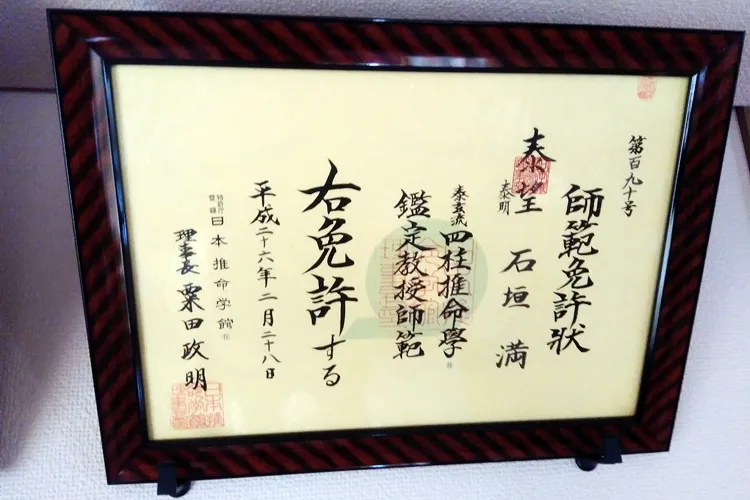 第百九十号
師範免許状
泰望 石垣 満
泰明
泰玄流 四柱推命學
鑑定教授師範
右免許する
平成二十六年二月二十八日
特許庁登録 日本推命学館
理事長 粟田政明